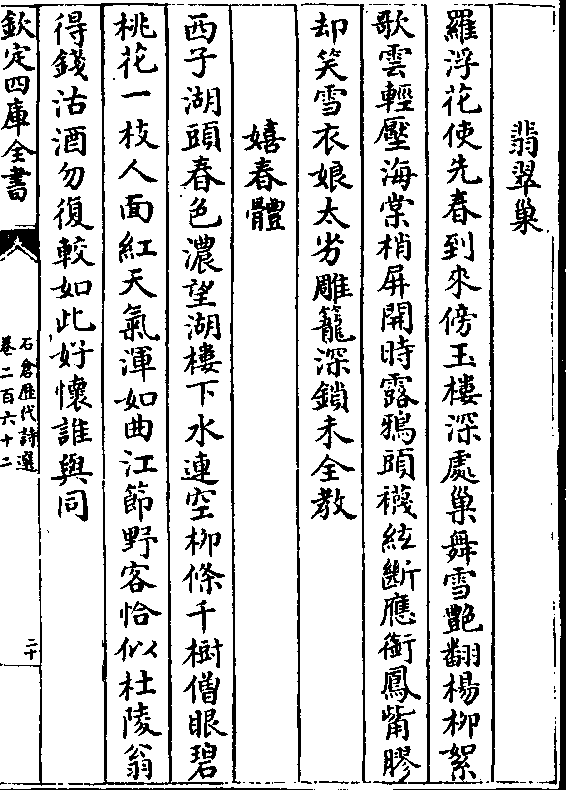 翡翠巢
羅浮花使先春到來傍玉樓深處巢舞雪艷翻楊柳絮
歌雲輕壓海棠梢屏開時露鴉頭襪絃斷應銜鳳觜膠
却笑雪衣娘太劣雕籠深鎖未全教
嬉春體
西子湖頭春色濃望湖樓下水連空柳條千樹僧眼碧
桃花一枝人面紅天氣渾如曲江節野客恰似杜陵翁
得錢沽酒勿復較如此好懷誰與同
欽定四庫全書
石倉歴代詩選
卷二百六十二
二十